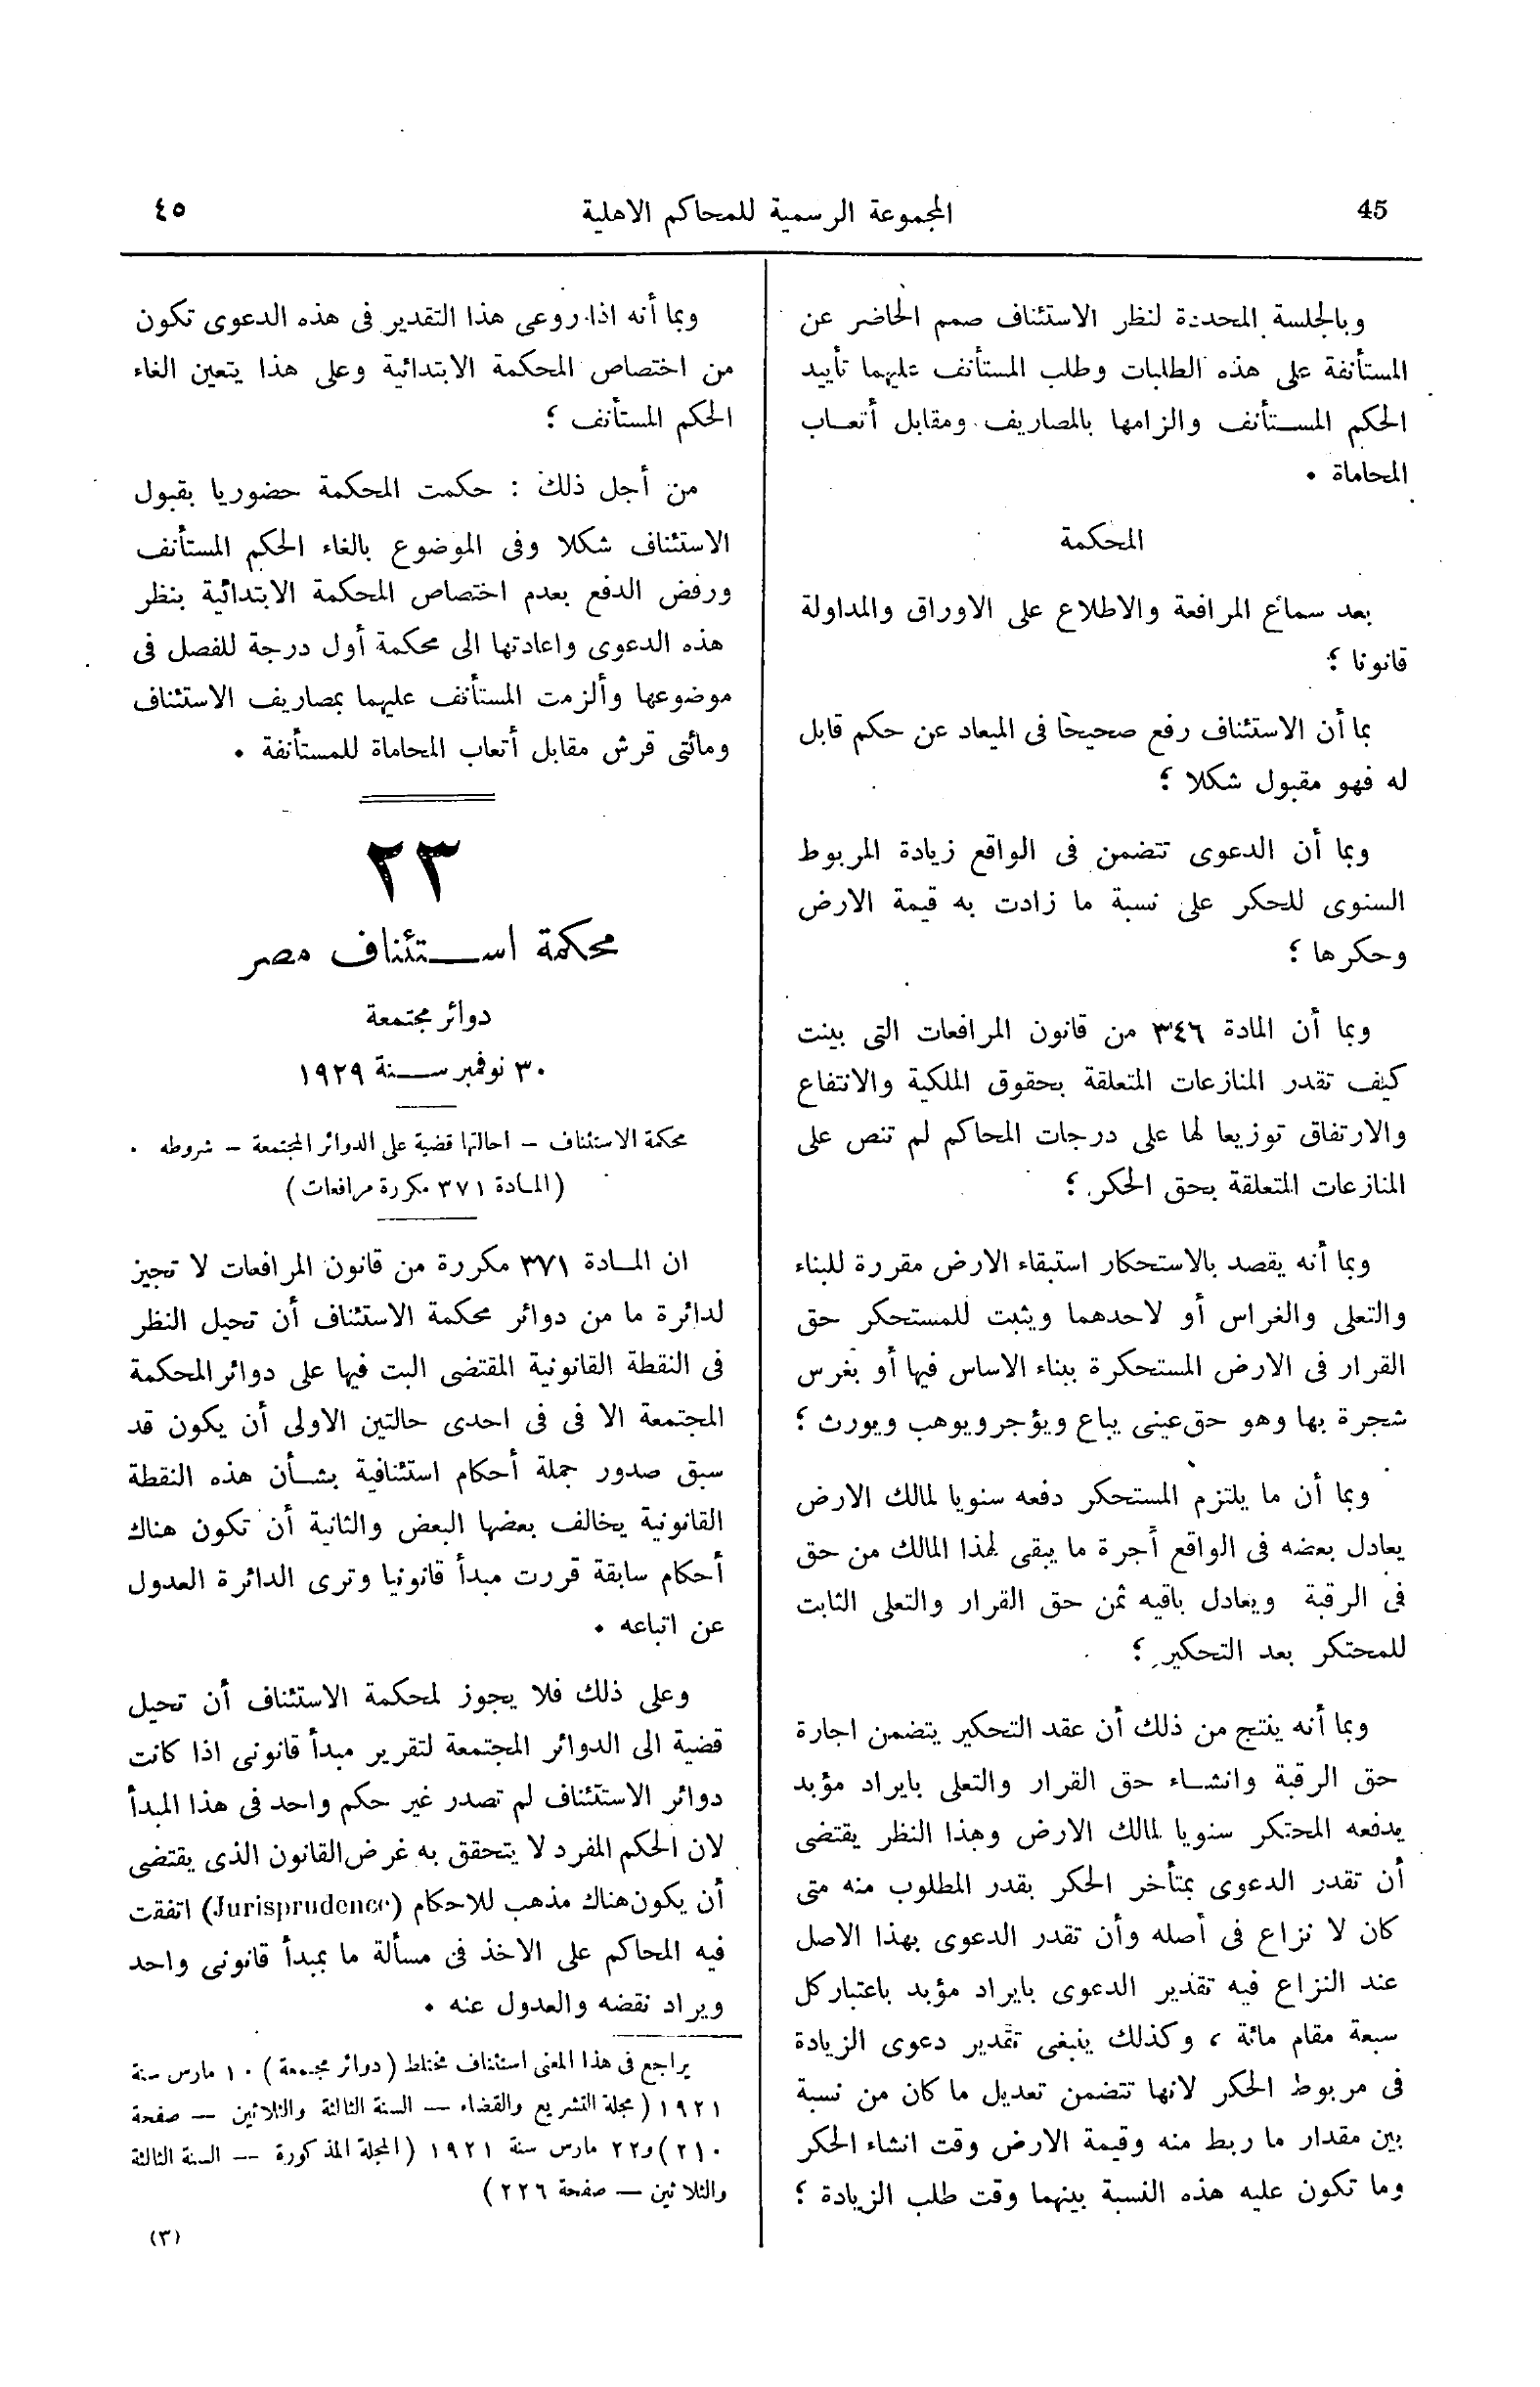 45
المجموعة الرسمية للمحاكم الاهلية
٤٥
وبالجلسة المحددة لنظر الاستئناف صمم الحاضر عن
المستأنفة على هذه الطلبات وطلب المستأنف عليهما تأييد
الحكم المستأنف والزامها بالمصاريف ومقابل أتعاب
المحاماة .
المحكمة
بعد سماع المرافعة والاطلاع على الاوراق والمداولة
قانونا ؛
بما أن الاستئناف رفع صحيحا فى الميعاد عن حكم قابل
له فهو مقبول شكلا ؛
وبما أن الدعوى تتضمن فى الواقع زيادة المربوط
السنوى للحكر على نسبة ما زادت به قيمة الارض
وحكرها ؛
وبما أن المادة ٣٤٦ من قانون المرافعات التى بينت
كيف تقدر المنازعات المتعلقة بحقوق الملكية والانتفاع
والارتفاق توزيعا لها على درجات المحاكم لم تنص على
المنازعات المتعلقة بحق الحكر ؛
وبما أنه يقصد بالاستحكار استبقاء الارض مقررة للبناء
والتعلى والغراس أو لاحدهما ويثبت للمستحكر حق
القرار فى الارض المستحكرة ببناء الاساس فيها أو بغرس
شجرة بها وهو حق عينى يباع ويؤجر ويوهب ويورث ؛
وبما أن ما يلتزم المستحكر دفعه سنويا لمالك الارض
يعادل بعضه فى الواقع أجرة ما يبقى لهذا المالك من حق
فى الرقبة ويعادل باقيه ثمن حق القرار والتعلى الثابت
للمحتكر بعد التحكير ؛
وبما أنه ينتج من ذلك أن عقد التحكير يتضمن اجارة
حق الرقبة وانشاء حق القرار والتعلى بايراد مؤبد
يدفعه المحتكر سنويا لمالك الارض وهذا النظر يقتضى
أن تقدر الدعوى بمتأخر الحكر بقدر المطلوب منه متى
كان لا نزاع فى أصله وأن تقدر الدعوى بهذا الاصل
عند النزاع فيه تقدير الدعوى بايراد مؤبد باعتبار كل
سبعة مقام مائة ، وكذلك ينبغى تقدير دعوى الزيادة
فى مربوط الحكر لانها تتضمن تعديل ما كان من نسبة
بين مقدار ما ربط منه وقيمة الارض وقت انشاء الحكر
وما تكون عليه هذه النسبة بينهما وقت طلب الزيادة ؛
وبما أنه اذا روعى هذا التقدير فى هذه الدعوى تكون
من اختصاص المحكمة الابتدائية وعلى هذا يتعين الغاء
الحكم المستأنف ؛
من أجل ذلك : حكمت المحكمة حضوريا بقبول
الاستئناف شكلا وفى الموضوع بالغاء الحكم المستأنف
ورفض الدفع بعدم اختصاص المحكمة الابتدائية بنظر
هذه الدعوى واعادتها الى محكمة أول درجة للفصل فى
موضوعها وألزمت المستأنف عليهما بمصاريف الاستئناف
ومائتى قرش مقابل أتعاب المحاماة للمستأنفة .
٢٣
محكمة استئناف مصر
دوائر مجتمعة
٣٠ نوفمبر سنة ١٩٢٩
محكمة الاستئناف – احالتها قضية على الدوائر المجتمعة – شروطه .
(المادة ٣٧١ مكررة مرافعات)
ان المادة ٣٧١ مكررة من قانون المرافعات لا تجيز
لدائرة ما من دوائر محكمة الاستئناف أن تحيل النظر
فى النقطة القانونية المقتضى البت فيها على دوائر المحكمة
المجتمعة الا فى فى احدى حالتين الاولى أن يكون قد
سبق صدور جملة أحكام استئنافية بشأن هذه النقطة
القانونية يخالف بعضها البعض والثانية أن تكون هناك
أحكام سابقة قررت مبدأ قانونيا وترى الدائرة العدول
عن اتباعه .
وعلى ذلك فلا يجوز لمحكمة الاستئناف أن تحيل
قضية الى الدوائر المجتمعة لتقرير مبدأ قانونى اذا كانت
دوائر الاستئناف لم تصدر غير حكم واحد فى هذا المبدأ
لان الحكم المفرد لا يتحقق به غرض القانون الذى يقتضى
أن يكون هناك مذهب للاحكام (Jurisprudence) اتفقت
فيه المحاكم على الاخذ فى مسألة ما بمبدأ قانونى واحد
ويراد نقضه والعدول عنه .
يراجع فى هذا المعنى استئناف مختلط (دوائر مجتمعة) ١٠ مارس سنة
١٩٢١ (مجلة التشريع والقضاء — السنة الثالثة والثلاثين — صفحة
٢١٠) و٢٢ مارس سنة ١٩٢١ (المجلة المذكورة — السنة الثالثة
والثلاثين — صفحة ٢٢٦)
(٣)